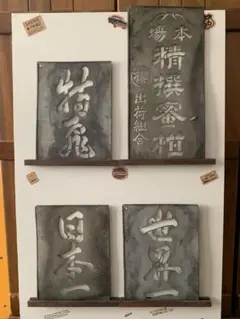 本場
精撰蜜柑
出荷組合
特飛
日本一
世界一